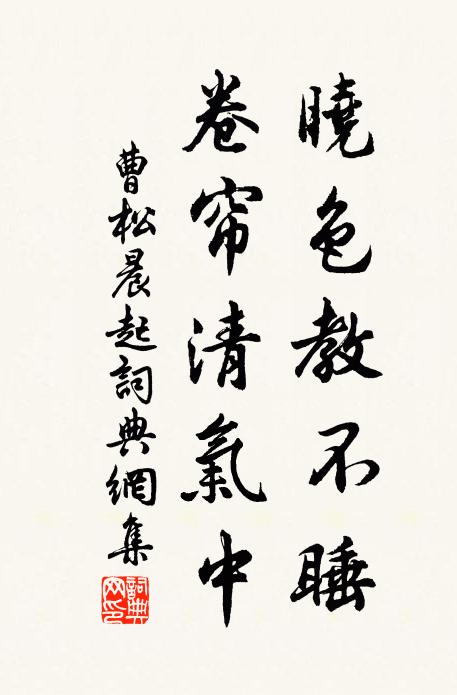 曉色教不睡
卷帘清氣中
曹松晨起詞典網集
詞典網印